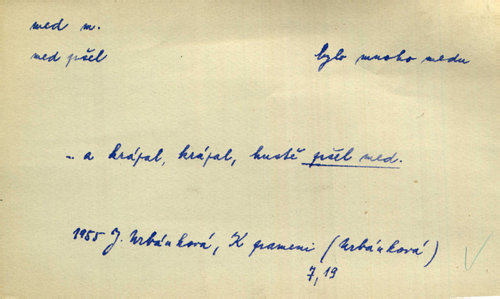 med m.
med pršel bylo mnoho medu
.. a krájal, krájal, hustě pršel med.
1955 J. Urbánková, K prameni (Urbánková)
7,19